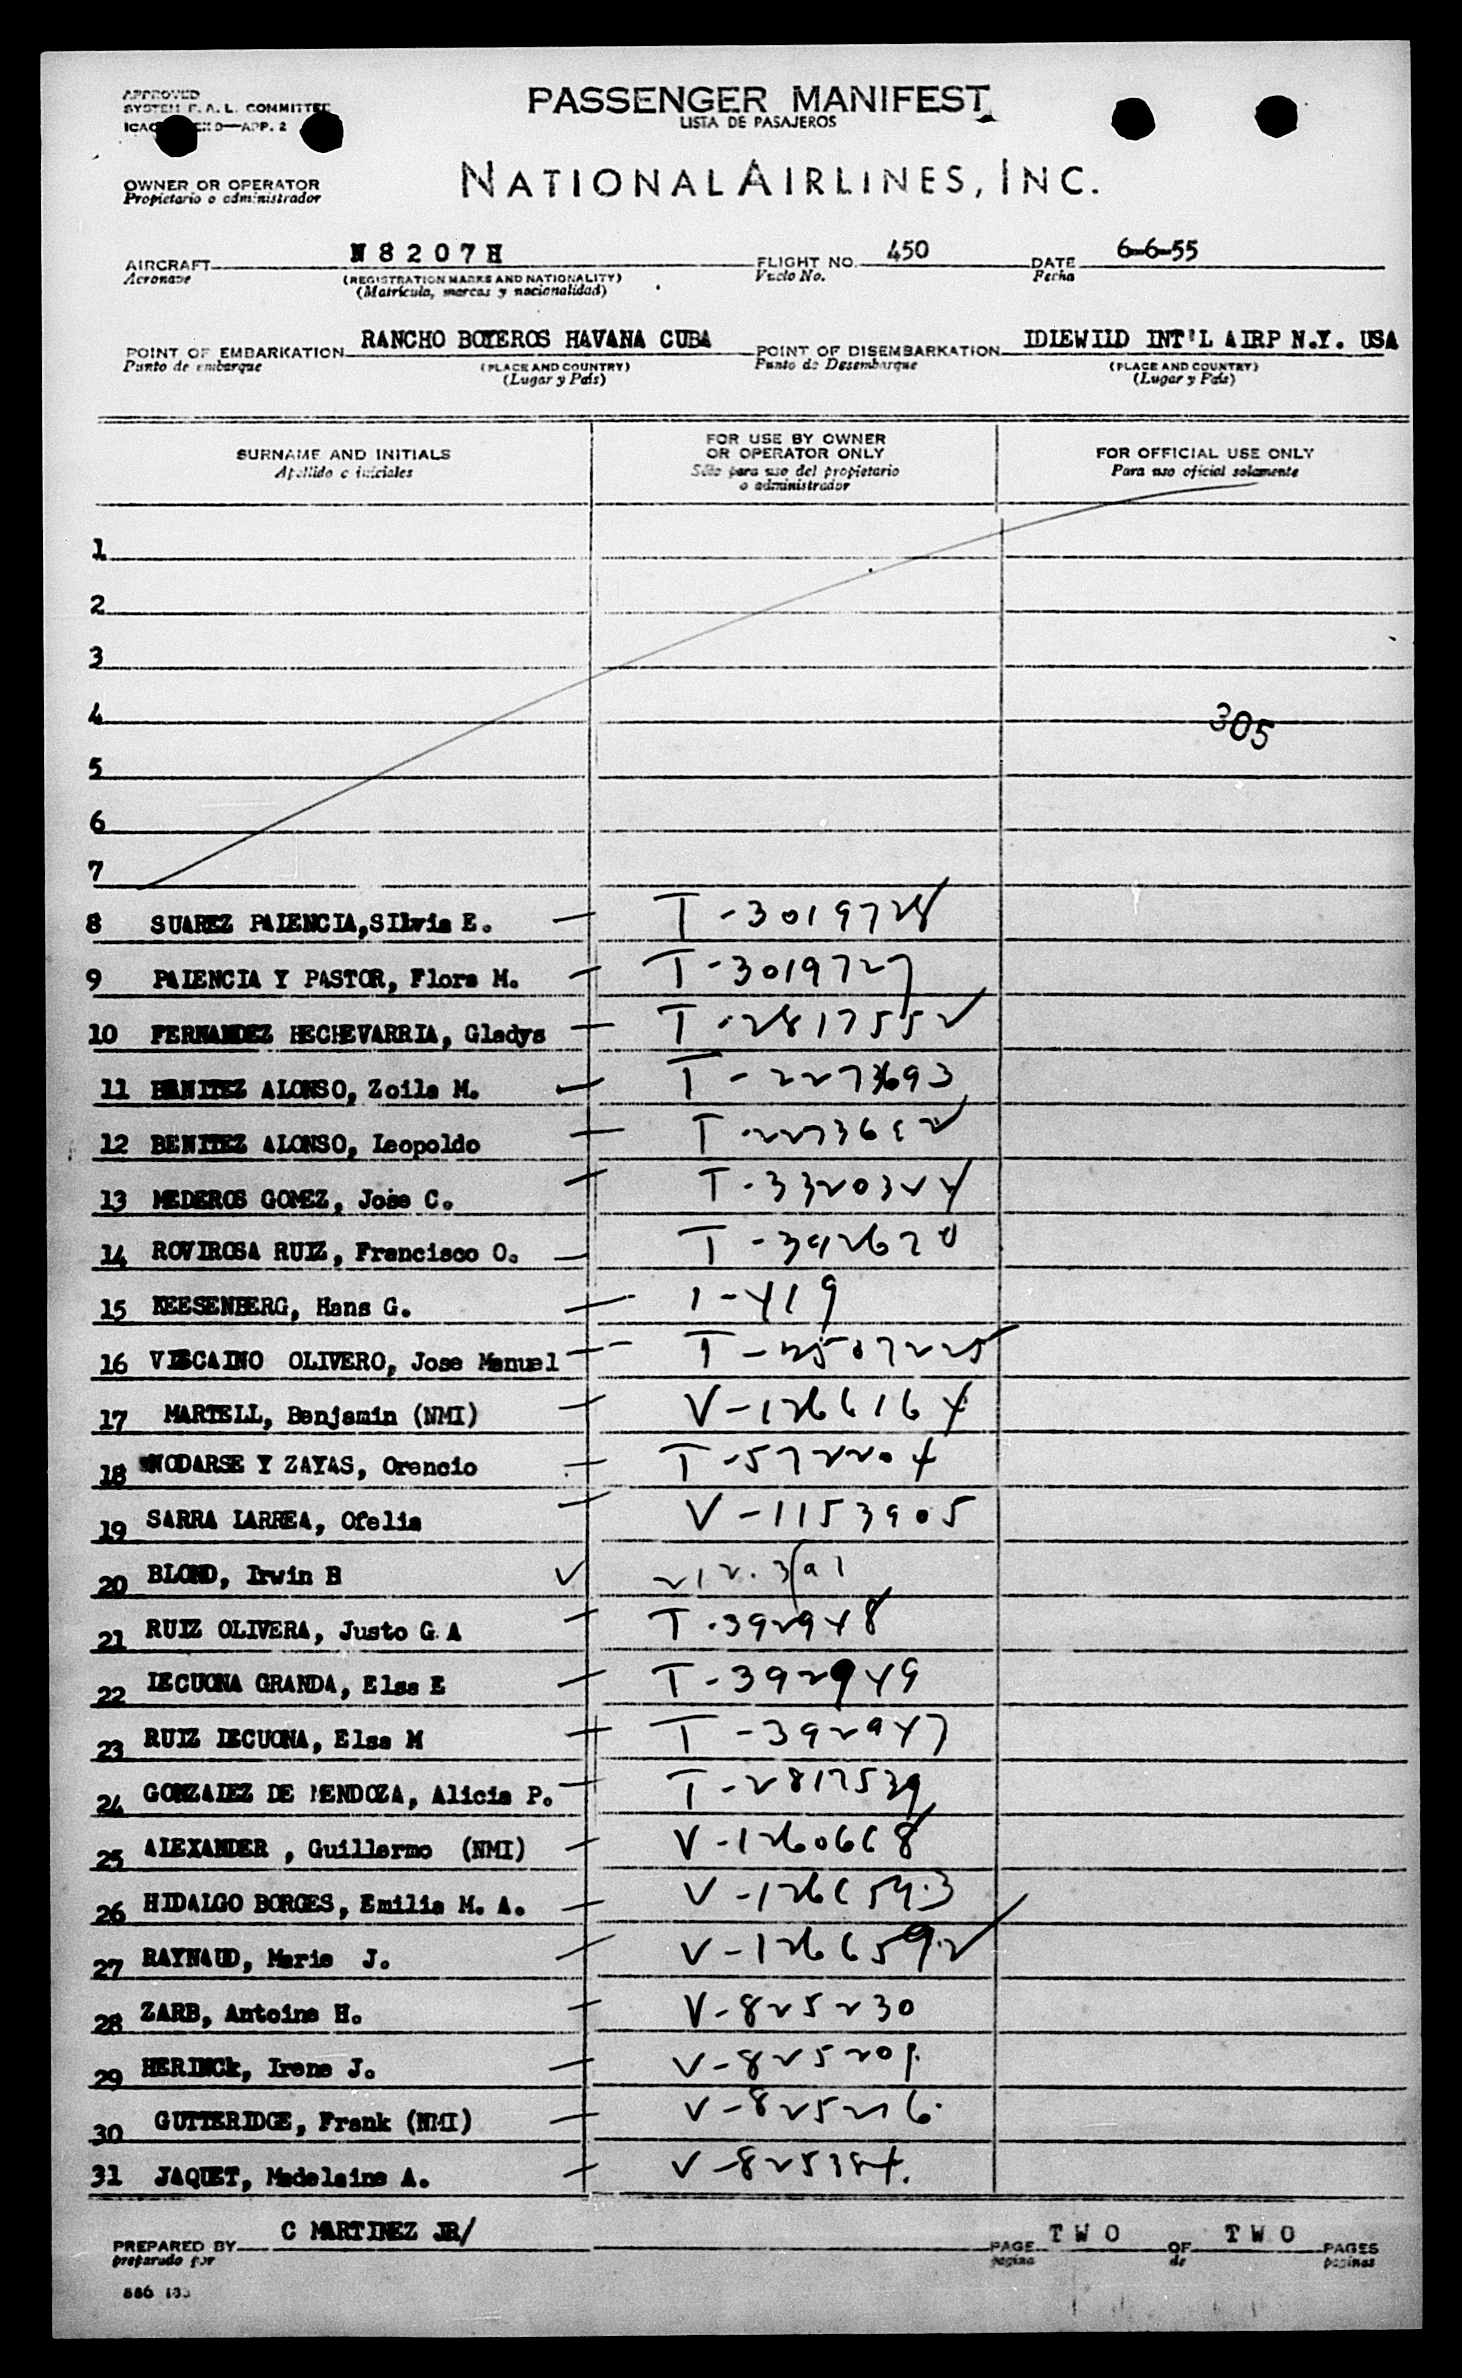 APPROVED
SYSTEM F. A. L. COMMITTEE
APP. 2
PASSENGER MANIFEST
LISTA DE PASAJEROS
NATIONAL AIRLINES, INC.
OWNER OR OPERATOR
Propietario o administrador
AIRCRAFT N8207H FLIGHT NO. 450 DATE 6-6-55
Aeronave (REGISTRATION MARKS AND NATIONALITY) Vuelo No. Fecha
(Matrícula, marcas y nacionalidad)
POINT OF EMBARKATION RANCHO BOYEROS HAVANA CUBA POINT OF DISEMBARKATION IDLEWILD INT'L AIRP N.Y. USA
Punto de embarque (PLACE AND COUNTRY) Punto de Desembarque (PLACE AND COUNTRY)
(Lugar y País) (Lugar y País)
SURNAME AND INITIALS FOR USE BY OWNER OR OPERATOR ONLY FOR OFFICIAL USE ONLY
Apellido e iniciales Sólo para uso del propietario o administrador Para uso oficial solamente
1
2
3
4 305
5
6
7
8 SUAREZ PALENCIA, SIlvia E. T-3019728
9 PALENCIA Y PASTOR, Flora M. T-3019727
10 FERNANDEZ HECHEVARRIA, Gladys T-2817552
11 BENITEZ ALONSO, Zoila M. T-2273693
12 BENITEZ ALONSO, Leopoldo
13 MEDEROS GOMEZ, Jose C. T-3320324
14 ROVIROSA RUIZ, Francisco O. T-392620
15 KEESENBERG, Hans G. 1-419
16 VISCAINO OLIVERO, Jose Manuel
17 MARTELL, Benjamin (NMI) V-1266164
18 NODARSE Y ZAYAS, Orencio T-572204
19 SARRA LARREA, Ofelia V-1153905
20 BLOND, Irwin B
21 RUIZ OLIVERA, Justo G A T-392948
22 LECUONA GRANDA, Elsa E T-392949
23 RUIZ LECUONA, Elsa M T-392947
24 GONZALEZ DE MENDOZA, Alicia P. T-2817539
25 ALEXANDER , Guillermo (NMI) V-1260668
26 HIDALGO BORGES, Emilia M. A. V-1266593
27 RAYNAUD, Marie J. V-1266592
28 ZARB, Antoine H. V-825230
29 HERINCK, Irene J. V-825201
30 GUTTERIDGE, Frank (NMI) V-825216
31 JAQUET, Madelaine A. V-825384
PREPARED BY C MARTINEZ JR/ PAGE TWO OF TWO PAGES
preparado por pagina de paginas